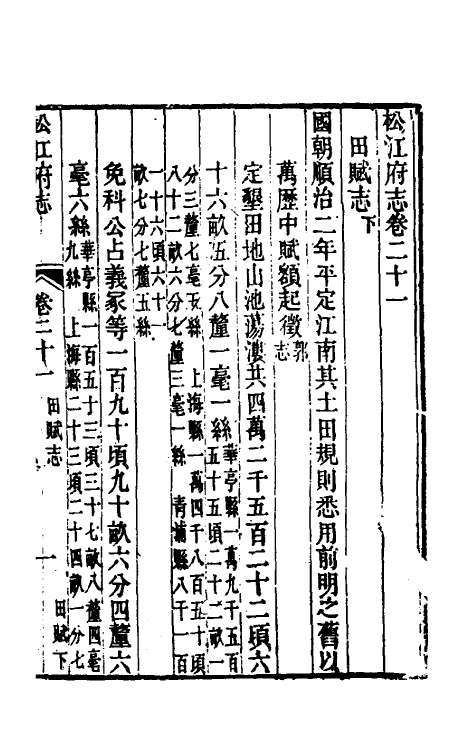 松江府志卷二十一
田賦志下
國朝順治二年平定江南其土田規則悉用前明之舊以
萬歷中賦額起徵郭志
定墾田地山池蕩漊共四萬二千五百二十二頃六
十六畝五分八釐一毫一絲華亭縣一萬九千五百
五十五頃二十二畝一
分三釐七毫五絲 上海縣一萬四千八百五十頃
八十二畝六分七釐三毫一絲 青浦縣八千一百
一十六頃六十一
畝七分七釐五絲
免科公占義冢等一百九十頃九十畝六分四釐六
毫六絲華亭縣一百五十三頃三十七畝八釐四毫
九絲 上海縣二十三頃二十四畝一分七
松江府志 卷二十一 田賦志 一 田賦下